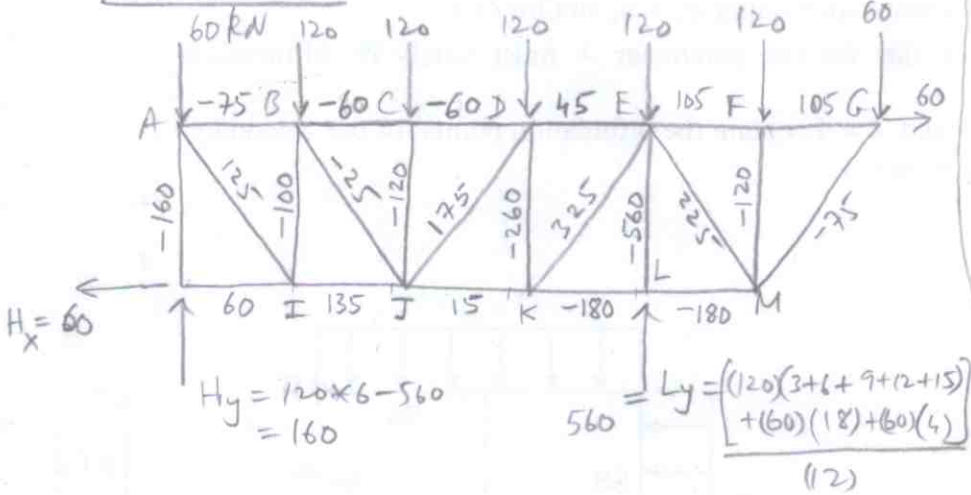 60 kN 120 120 120 120 120 60
A -75 B -60 C -60 D 45 E 105 F 105 G 60
-160 125 -100 -25 -120 175 -260 325 -560 225 -120 -75
L
Hx = 60 60 I 135 J 15 K -180 -180 M
Hy = 120*6-560
= 160
560 = Ly = [(120)(3+6+9+12+15)
+(60)(18)+(60)(4)]
(12)